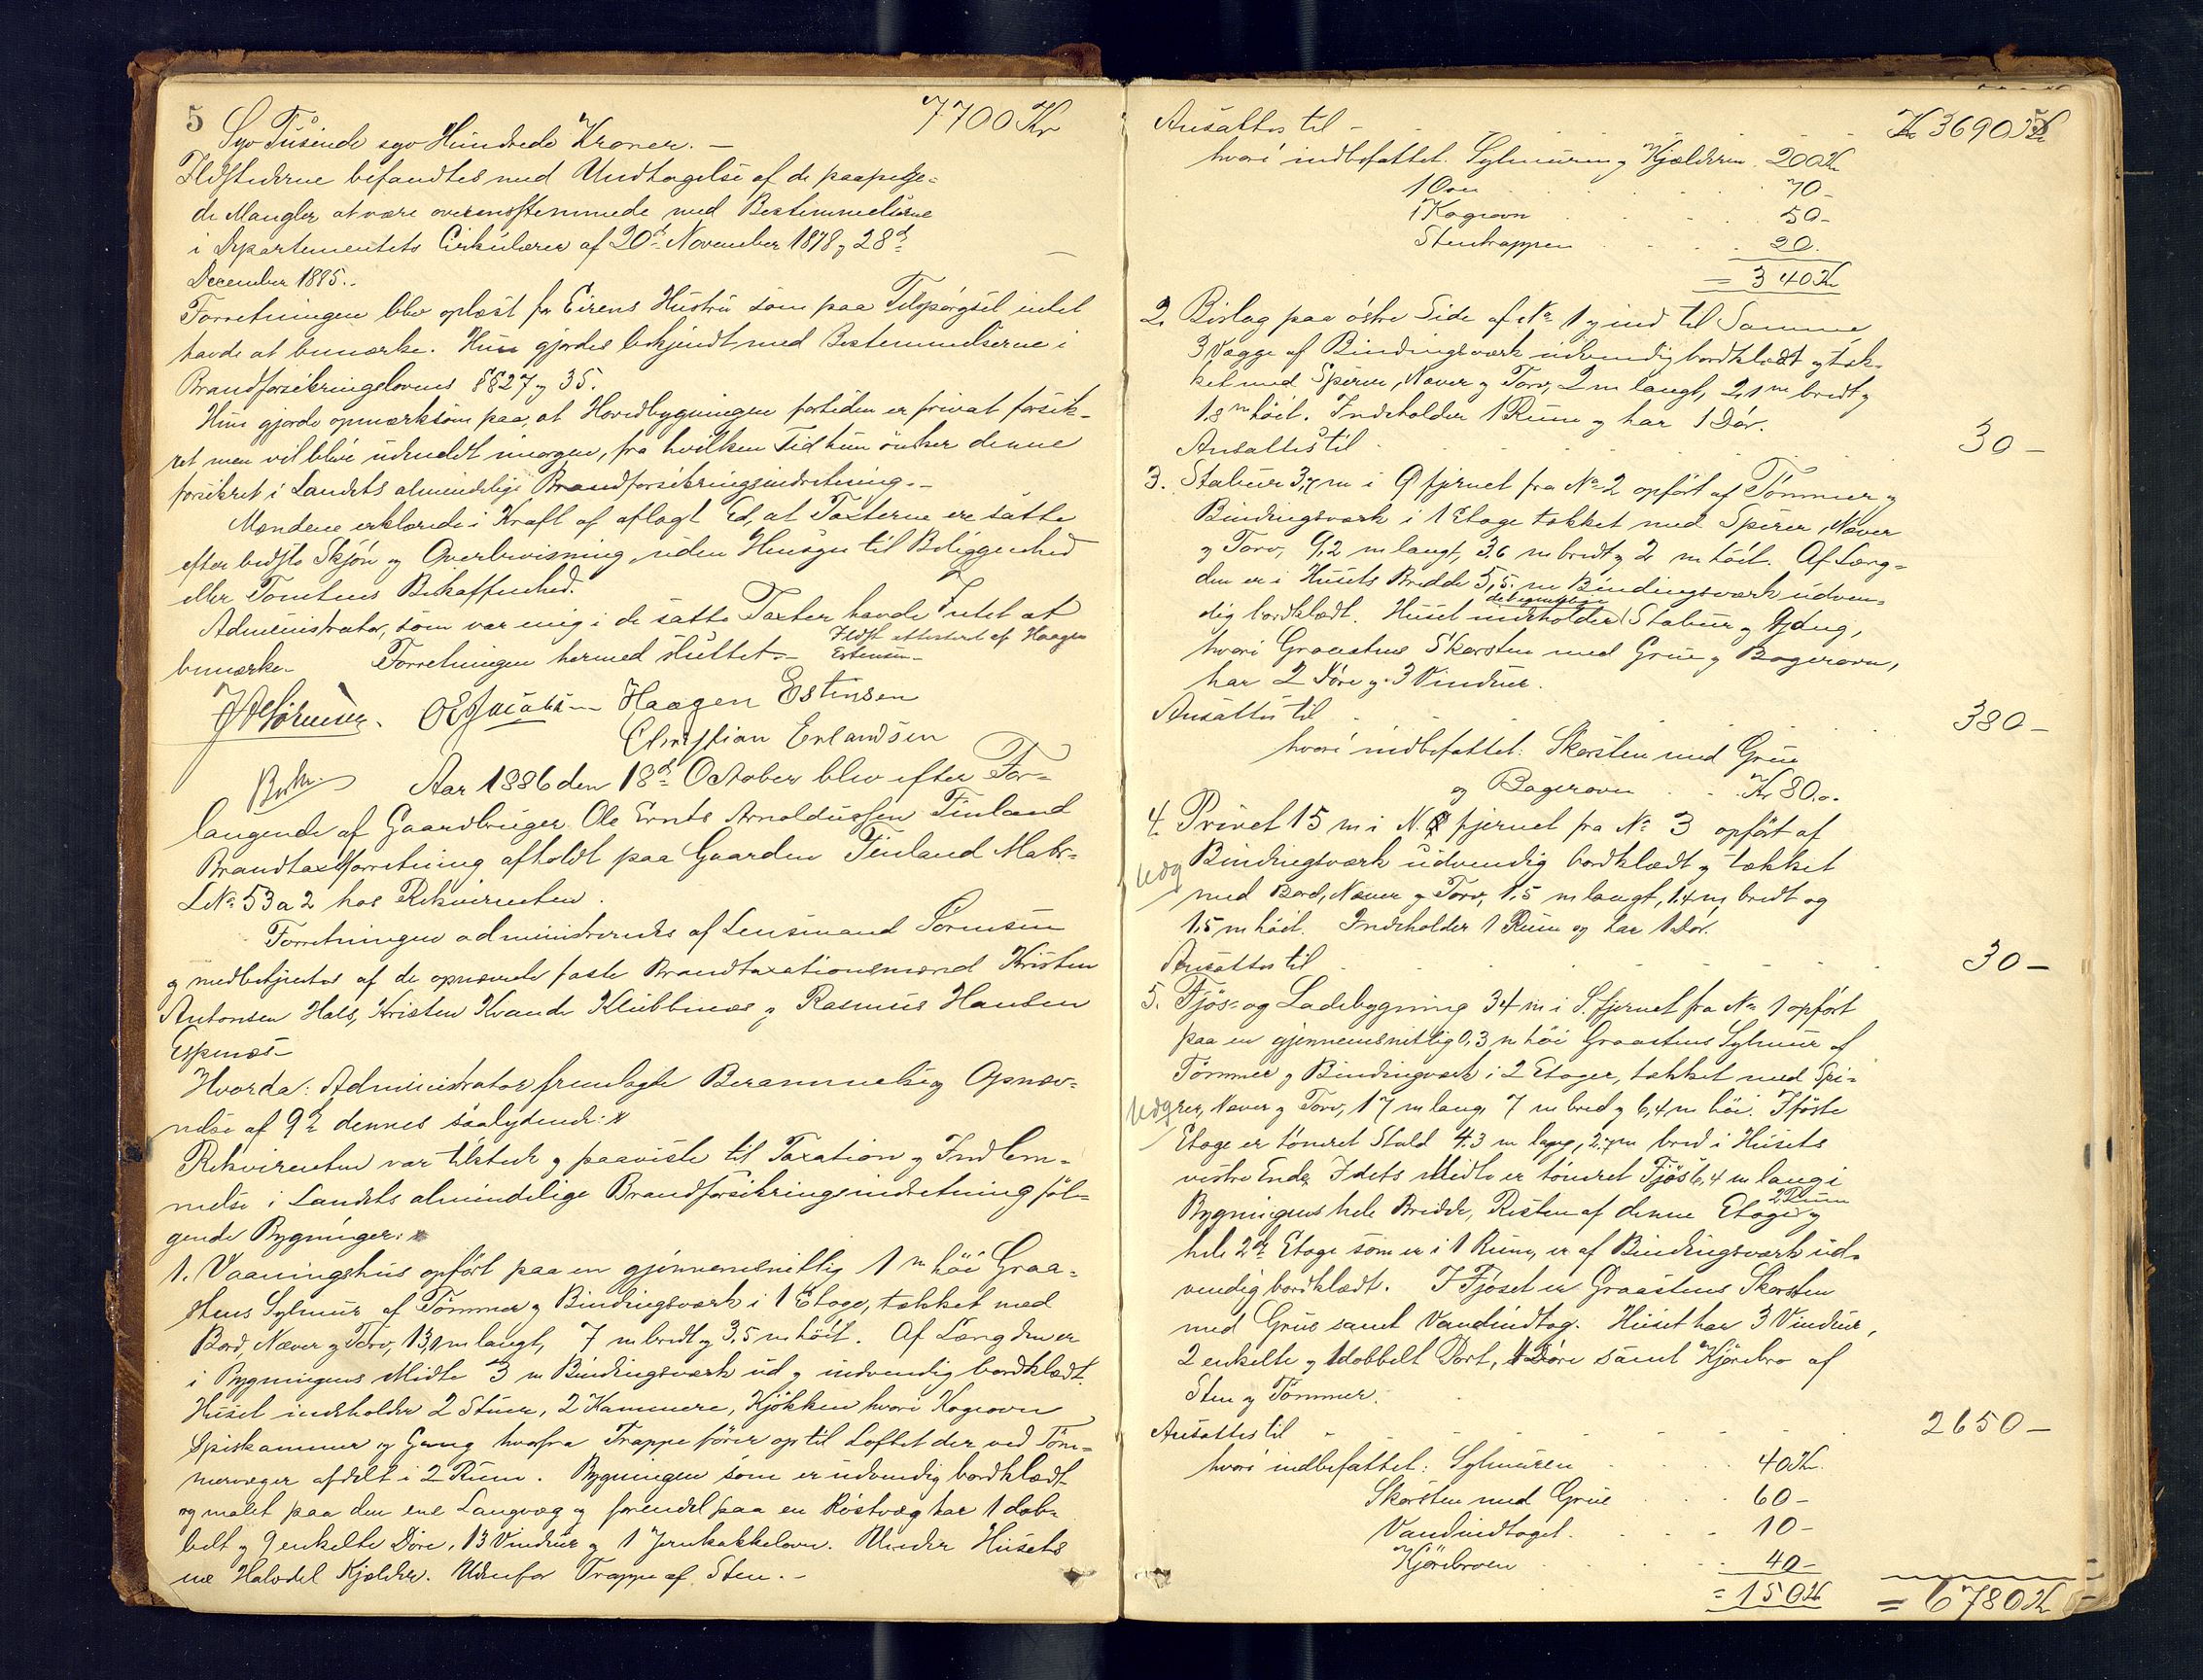 5
7700 Kr
Syv Tusinde syv Hundrede Kroner. –
Ildstederne befandtes med Undtagelse af de paapege-
de Mangler at være overensstemmede med Bestemmelserne
i Departementets Cirkulærer af 20de November 1878 og 28de
December 1885.
Forretningen blev oplæst for Eierens Hustru som paa Tilspørgsel intet
havde at bemærke. Hun gjordes bekjendt med Bestemmelserne i
Brandforsikringslovens §§27 og 35.
Hun gjorde opmærksom paa, at Hovedbygningen fortiden er privat forsik-
ret men vil blive udmeldt imorgen, fra hvilken Tid hun ønsker denne
forsikret i Landets almindelige Brandforsikringsindretning. –
Mændene erklærede i Kraft af aflagt Ed, at Taxterne ere satte
efter bedste Skjøn og Overbevisning, uden Hensyn til Beliggenhed
eller Tomtens Beskaffenhed.
Administrator, som var enig i de satte Taxter havde Intet at
bemærke. Forretningen hermed sluttet. – Ildst. attesteret af Haagen
Estensen –
J A Sørensen. O E Jacobsen Haagen Estensen
Christian Erlandsen
Aar 1886 den 18de October blev efter For-
langende af Gaardbruger Ole Ernts Arnoldussen Finland
Brandtaxtforretning afholdt paa Gaarden Finland Matr-
L№ 53a2 hos Rekvirenten.
Forretningen administreredes af Lensmand Sørensen
og medbetjentes af de opnævnte faste Brandtaxationsmænd Kristen
Antonsen Hals, Kristen Kvande Klubbnæs og Rasmus Hansen
Espenæs –
Hvorda: Administrator fremlagde Berammelse og Opnæv-
nelse af 9de dennes saalydende:
Rekvirenten var tilstede og paaviste til Taxation og Indlem-
melse i Landets almindelige Brandforsikringsindretning føl-
gende Bygninger:
1. Vaaningshus opført paa en gjennemsnitlig 1 m høi Graa-
stens Sylmur af Tømmer og Bindingsværk i 1 Etage, tækket med
Bord, Næver og Torv, 13,1 m langt, 7 m bredt og 3,5 m høit. Af Længden er
i Bygningens Midte 3 m Bindingsværk ud og indvendig bordklædt.
Huset indeholder 2 Stuer, 2 Kammere, Kjøkken hvori Kogeovn
Spiskammer og Gang hvorfra Trappe fører op til Loftet der ved Tøm-
mervæger afdelt i 2 Rum. Bygningen som er udvendig bordklædt
og malet paa den ene Langvæg og forendel paa en Røstvæg har 1 dob-
belt og 9 enkelte Døre, 13 Vinduer og 1 Jernkakkelovn. Under Husets
ene Halvdel Kjelder. Udenfor Trappe af Sten. –
Ansættes til –
Kr 3690
hvori indbefattet: Sylmuren og Kjælderen 200 Kr
1 Ovn 70 –
1 Kogeovn 50 –
Stentrappen 20.
= 340 Kr
2. Bislag paa østre Side af № 1 og ind til Samme
3 Vægge af Bindingsværk udvendig bordklædt og tæk-
ket med Sperrer, Næver og Torv, 2 m langt, 2,1 m bredt og
1,8 m høit. Indeholder 1 Rum og har 1 Dør.
Ansættes til 30 –
3. Stabur 3,7 m i Ø fjernet fra № 2 opført af Tømmer og
Bindingsværk i 1 Etage tækket med Sperrer, Næver
og Torv, 9,2 m langt, 3,6 m bredt og 2 m høit. Af Læng-
den er i Husets Bredde 5,5 m Bindingsværk udven-
dig bordklædt. Huset indeholder Stabur og Gang,
hvori Graastens Skorsten med Grue og Bagerovn,
har 2 Døre og 3 Vinduer.
Ansættes til 380 –
hvori indbefattet: Skorsten med Grue
og Bagerovn Kr 80.
4. Privet 15 m i N. fjernet fra № 3 opført af
Bindingsværk udvendig bordklædt og tækket
med Bord, Næver og Torv, 1,5 m langt, 1,4 m bredt og
1,5 m høit. Indeholder 1 Rum og har 1 Dør.
Ansættes til 30 –
5. Fjøs- og Ladebygning 34 m i S. fjernet fra № 1 opført
paa en gjennemsnitlig 0,3 m høi Graastens Sylmur af
Tømmer og Bindingværk i 2 Etager, tækket med Sper-
rer, Næver og Torv, 17 m lang 7 m bred og 6,4 m høi. I første
Etage er tømret Stald 4,3 m lang, 2,7 m bred i Husets
vestre Ende. I dets Midte er tømret Fjøs 6,4 m lang i
Bygningens hele Bredde, Resten af denne Etage 2 Rum og
hele 2den Etage som er i 1 Rum, er af Bindingsværk ud-
vendig bordklædt. I Fjøset er Graastens Skorsten
med Grue samt Vandindtag. Huset har 3 Vinduer,
2 enkelte og 1 dobbelt Port, 4 Døre samt Kjørebro af
Sten og Tømmer.
Ansættes til – 2650 –
hvori indbefattet: Sylmuren 40 Kr.
Skorsten med Grue 60 –
Vandindtaget. 10 –
Kjørebroen 40 –
= 150 Kr
= 6780 Kr